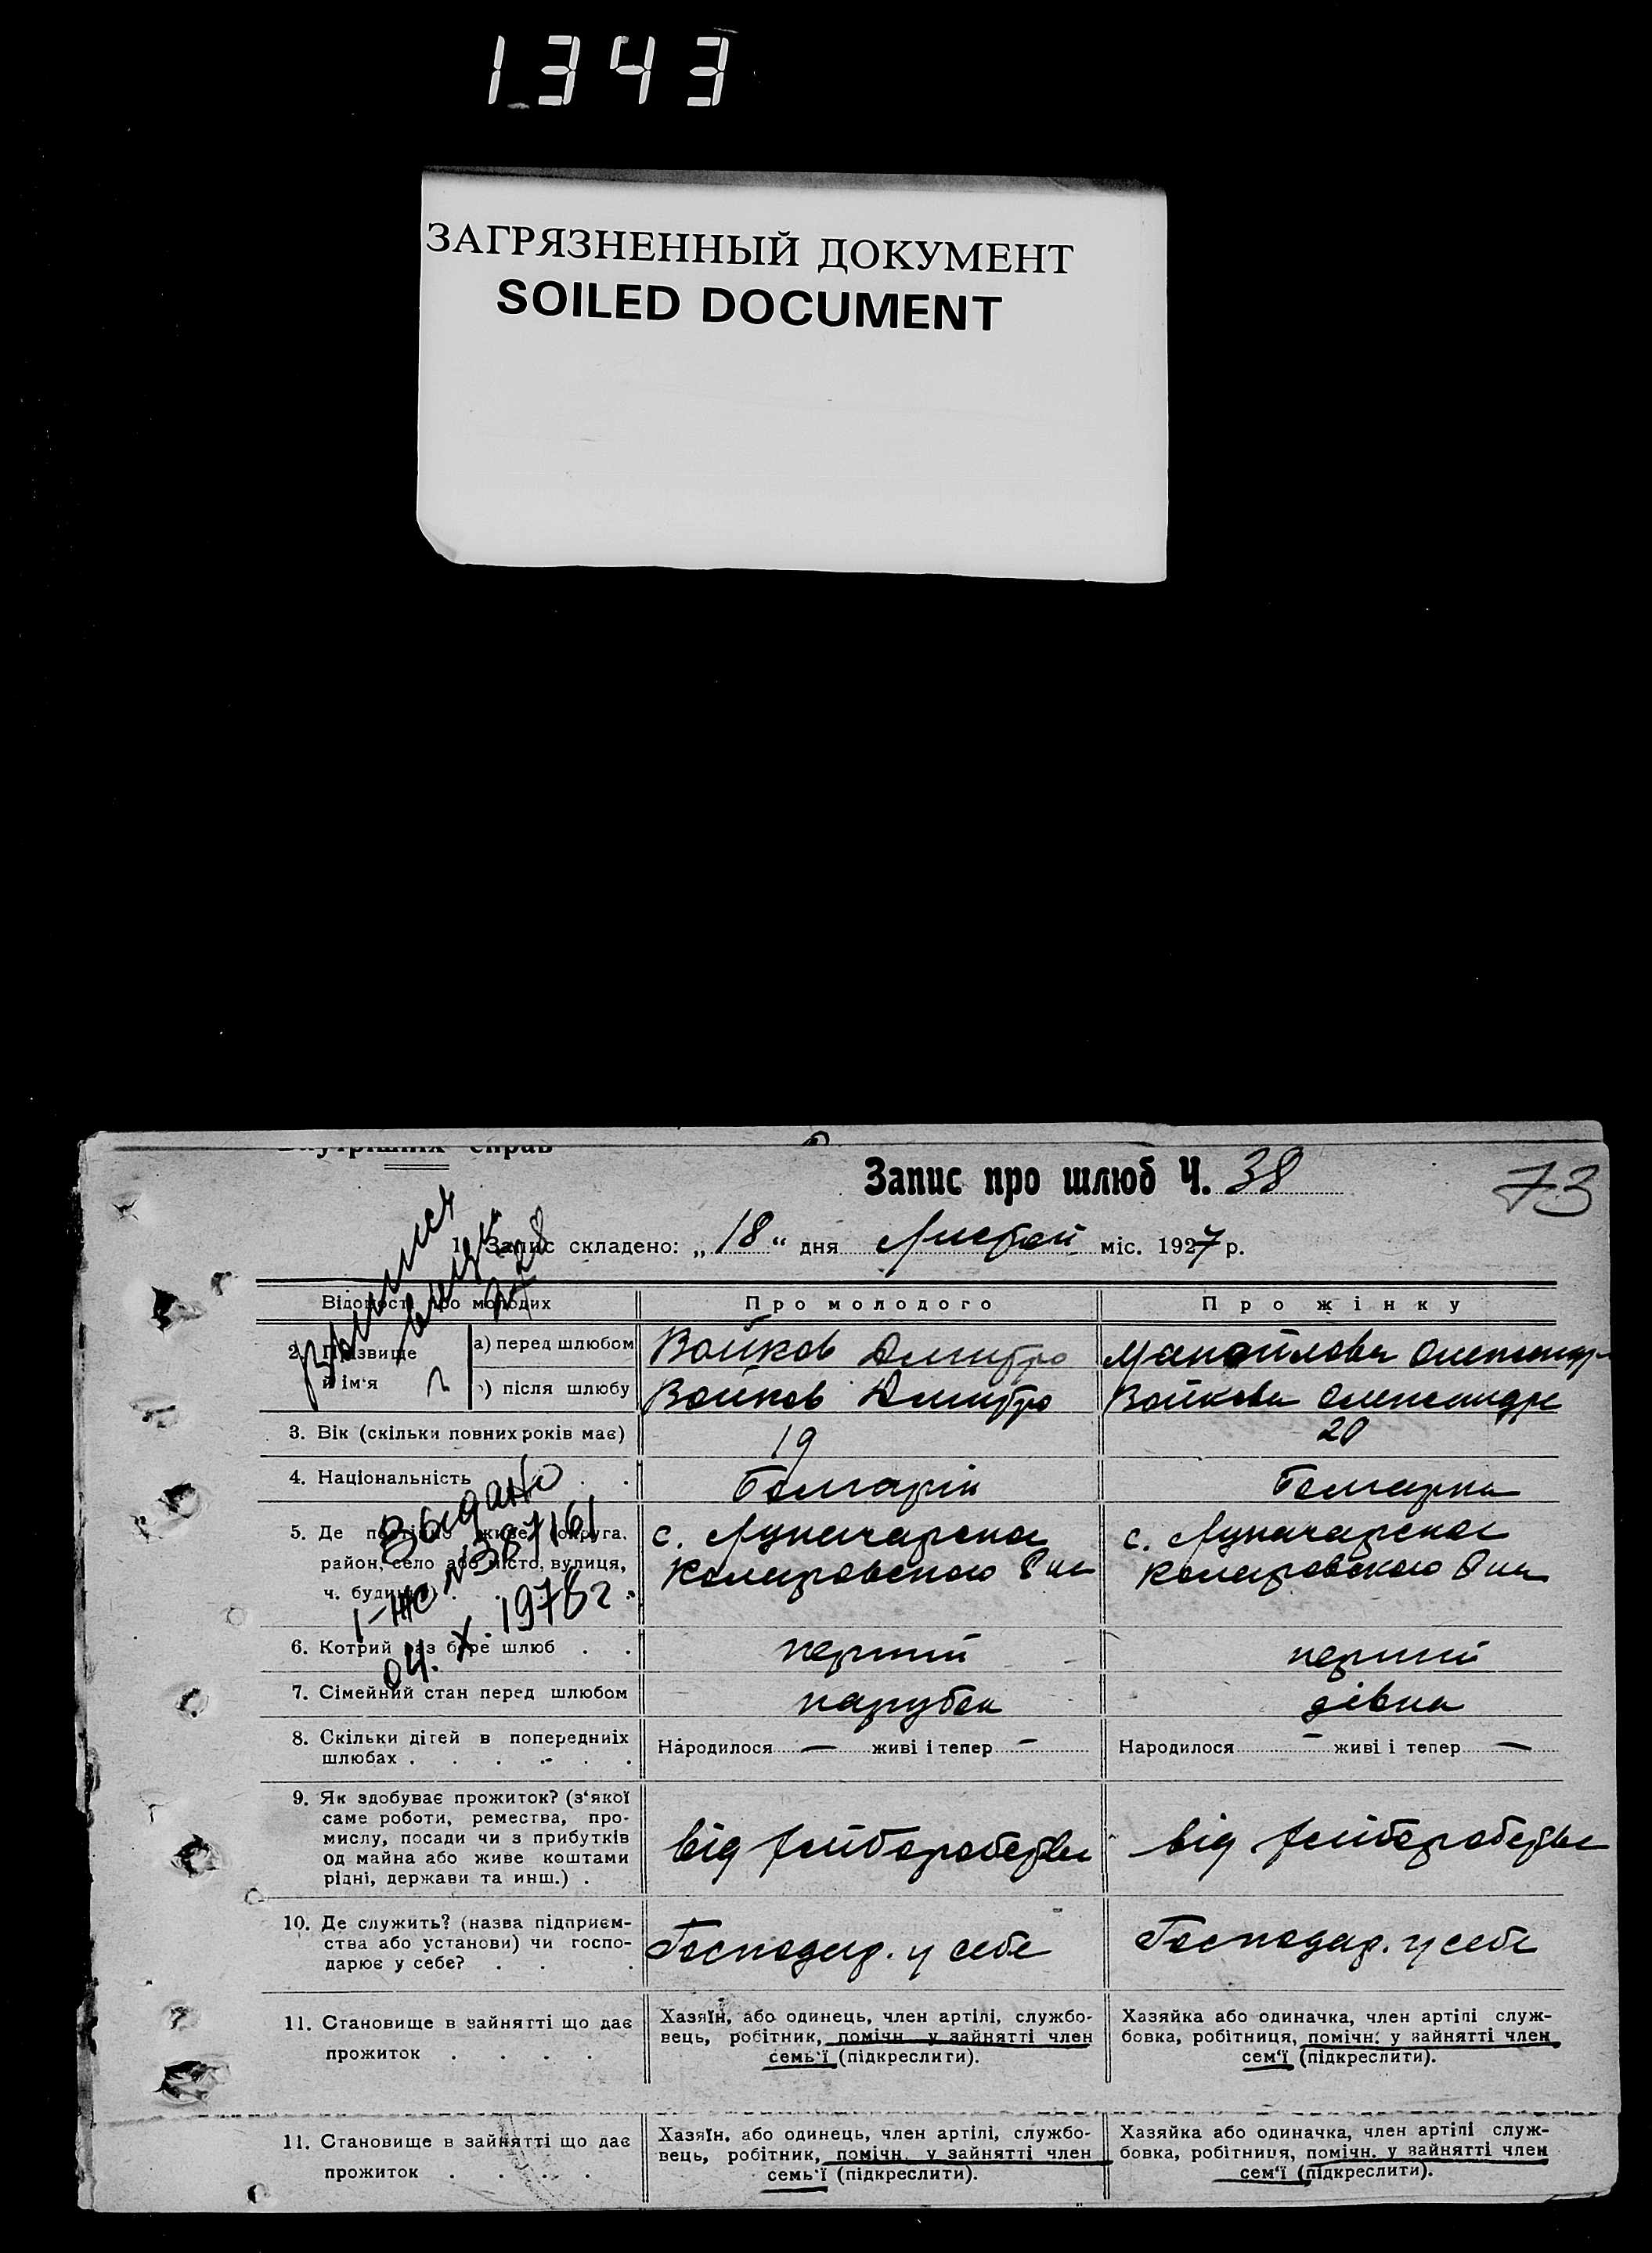 1343
ЗАГРЯЗНЕННЫЙ ДОКУМЕНТ
SOILED DOCUMENT
внутрішніх справ
Запис про шлюб Ч. 38
73
1. Запис складено: „ 18 “ дня міс. 1927 р.
Відомості про молодих
Про молодого
Про жінку
2. Прізвище й ім'я
а) перед шлюбом
Войков Дмитро
Манойлова Олександр
) після шлюбу
Войков Дмитро
Войкова Олександра
3. Вік (скільки повних років має)
19
20
4. Національність . .
Болгарін
Болгарка
5. Де постійно живе, округа,
район, село або місто, вулиця,
ч. будинку
с. Луначарское
с. Луначарское
6. Котрий раз бере шлюб . .
перший
перший
7. Сімейний стан перед шлюбом
парубок
дівка
8. Скільки дітей в попередніх
шлюбах . . . . . .
Народилося — живі і тепер —
Народилося — живі і тепер —
9. Як здобуває прожиток? (з‘якої
саме роботи, ремества, про-
мислу, посади чи з прибутків
од майна або живе коштами
рідні, держави та инш.) .
від хліборобства
від хліборобства
10. Де служить? (назва підприєм-
ства або установи) чи госпо-
дарює у себе? . . .
Господар. у себе
Господар. у себе
11. Становище в зайнятті що дає
прожиток . . . .
Хазяїн, або одинець, член артілі, службо-
вець, робітник, помічн. у зайнятті член
семь‘ї (підкреслити).
Хазяйка або одиначка, член артілі служ-
бовка, робітниця, помічн. у зайнятті член
сем‘ї (підкреслити).
11. Становище в зайнятті що дає
прожиток . . . .
Хазяїн, або одинець, член артілі, службо-
вець, робітник, помічн. у зайнятті член
семь‘ї (підкреслити).
Хазяйка або одиначка, член артілі служ-
бовка, робітниця, помічн. у зайнятті член
сем‘ї (підкреслити).
Выдано
I-ЖС №387161
04. X. 1978г.